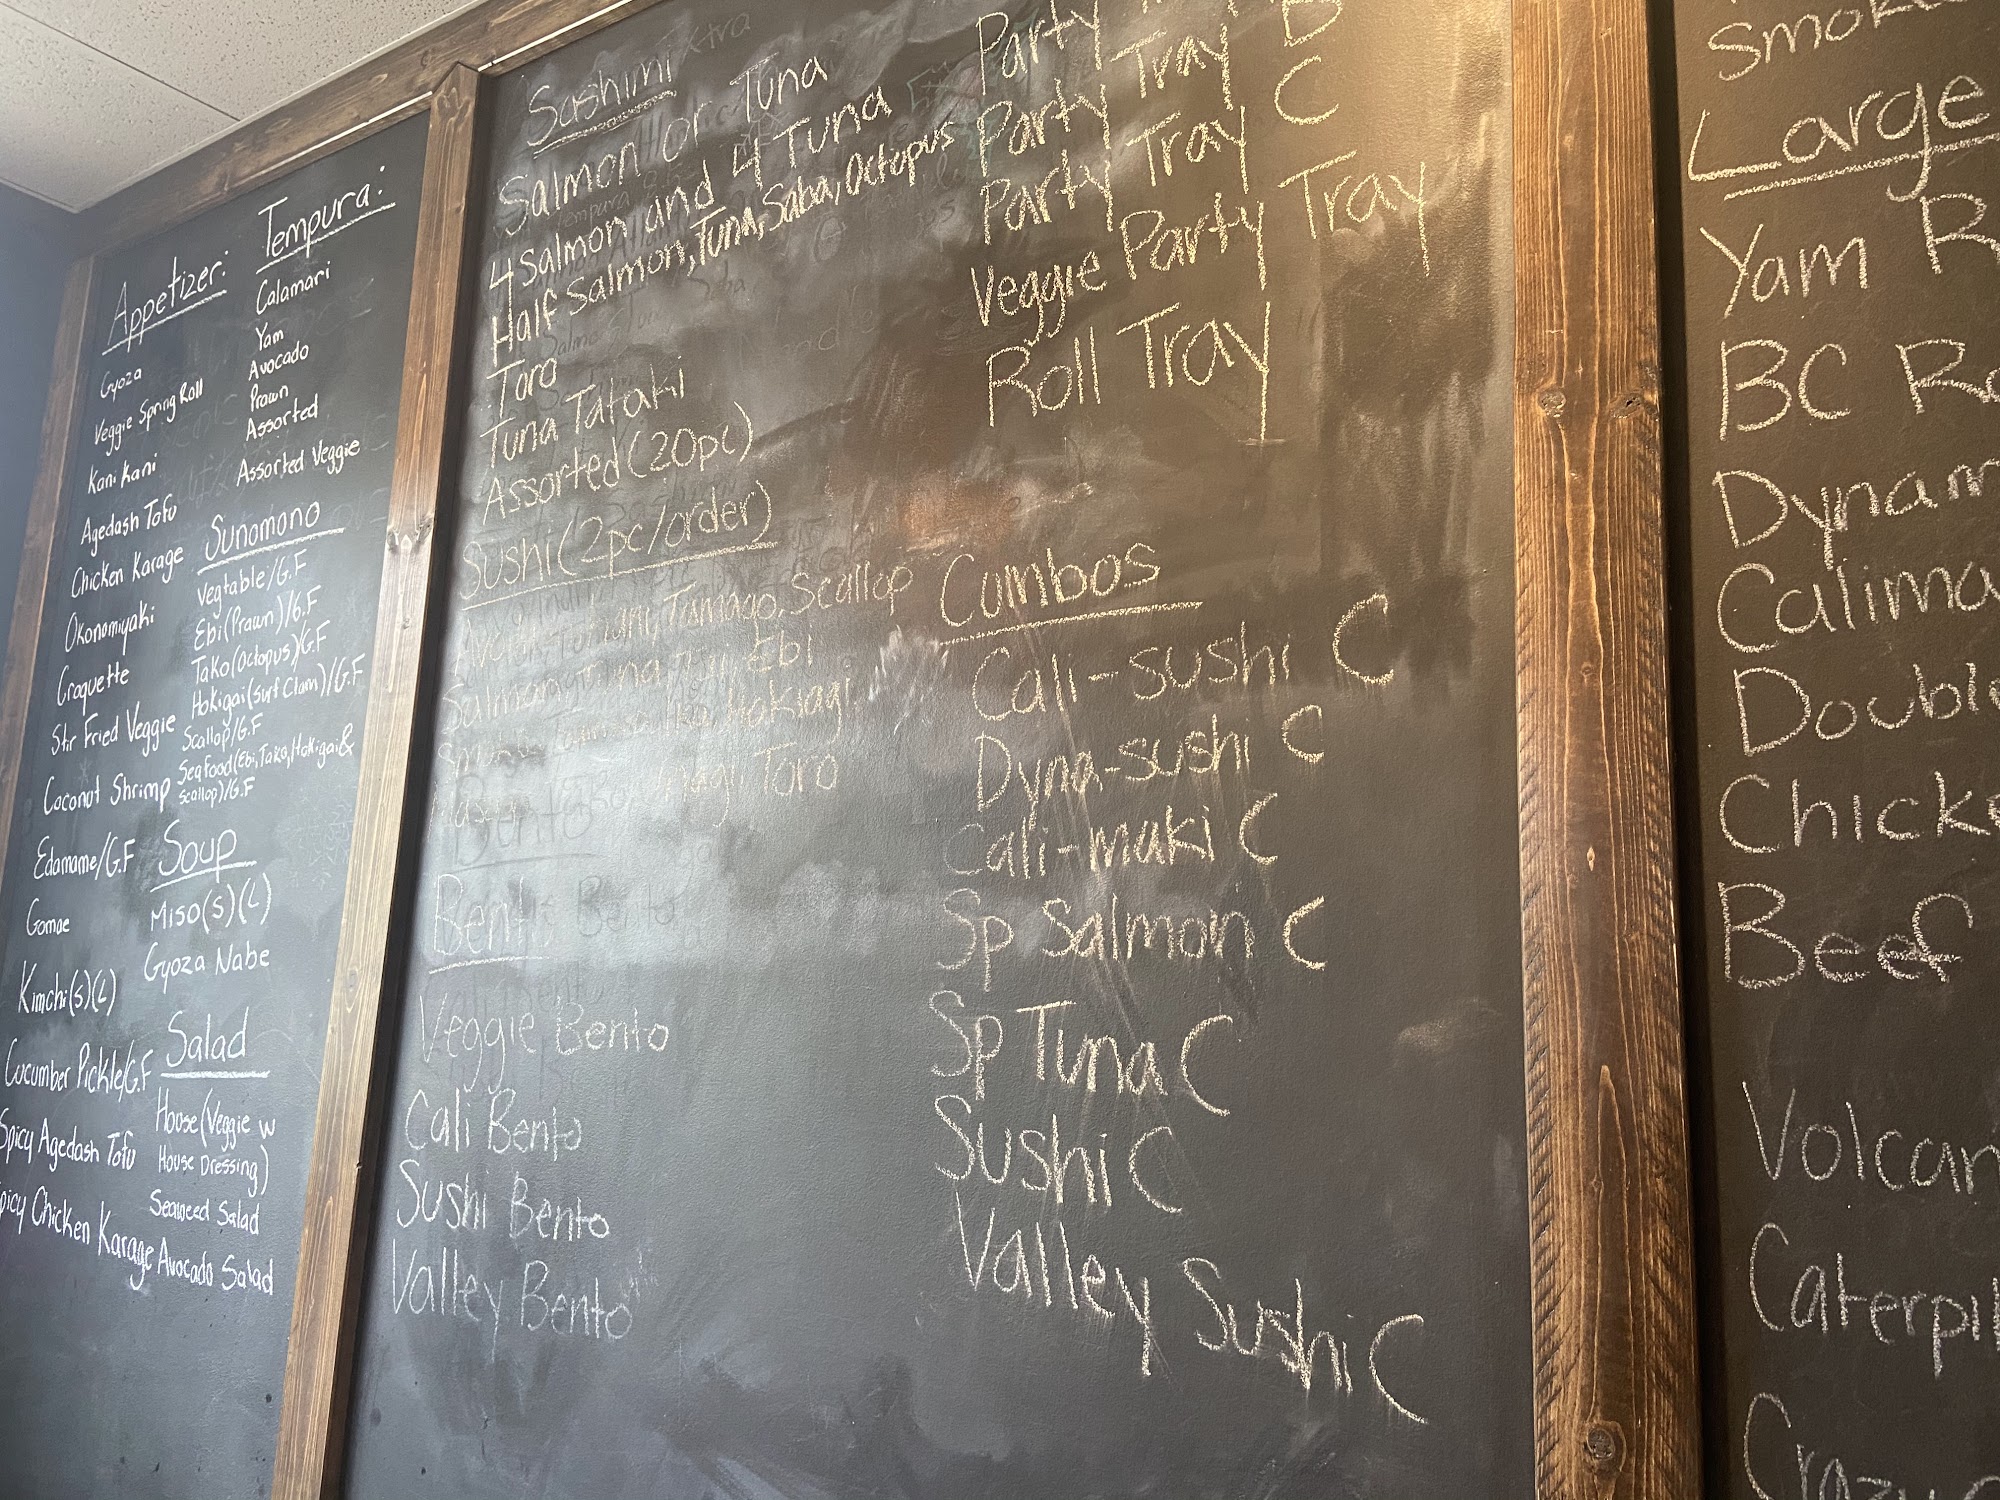 Appetizer:
Gyoza
Veggie Spring Roll
Kani Kani
Agedash Tofu
Chicken Karage
Okonomiyaki
Croquette
Stir Fried Veggie
Coconut Shrimp
Edamame/G.F
Gomae
Kimchi(S)(L)
Cucumber Pickle/G.F
Spicy Agedash Tofu
Spicy Chicken Karage
Tempura:
Calamari
Yam
Avocado
Prawn
Assorted
Assorted Veggie
Sunomono
Vegtable/G.F
Ebi(Prawn)/G.F
Tako(Octopus)/G.F
Hokigai(Surf Clam)/G.F
Scallop/G.F
Seafood(Ebi,Tako,Hokigai&
Scallop)/G.F
Soup
Miso(S)(L)
Gyoza Nabe
Salad
House(Veggie w
House Dressing)
Seaweed Salad
Avocado Salad
Sashimi
Salmon or Tuna
4 Salmon and 4 Tuna
Half Salmon, Tuna, Saba, Octopus
Toro
Tuna Tataki
Assorted(20pc)
Sushi(2pc/order)
Tamago, Scallop
Ebi
Hokiagi
Toro
Bento
Veggie Bento
Cali Bento
Sushi Bento
Valley Bento
Party
Party Tray B
Party Tray C
Veggie Party Tray
Roll Tray
Combos
Cali-sushi C
Dyna-sushi C
Cali-maki C
Sp Salmon C
Sp Tuna C
Sushi C
Valley Sushi C
Large
Yam R
BC Ro
Dynam
Calima
Double
Chick
Beef
Volcan
Caterpil
Crazy